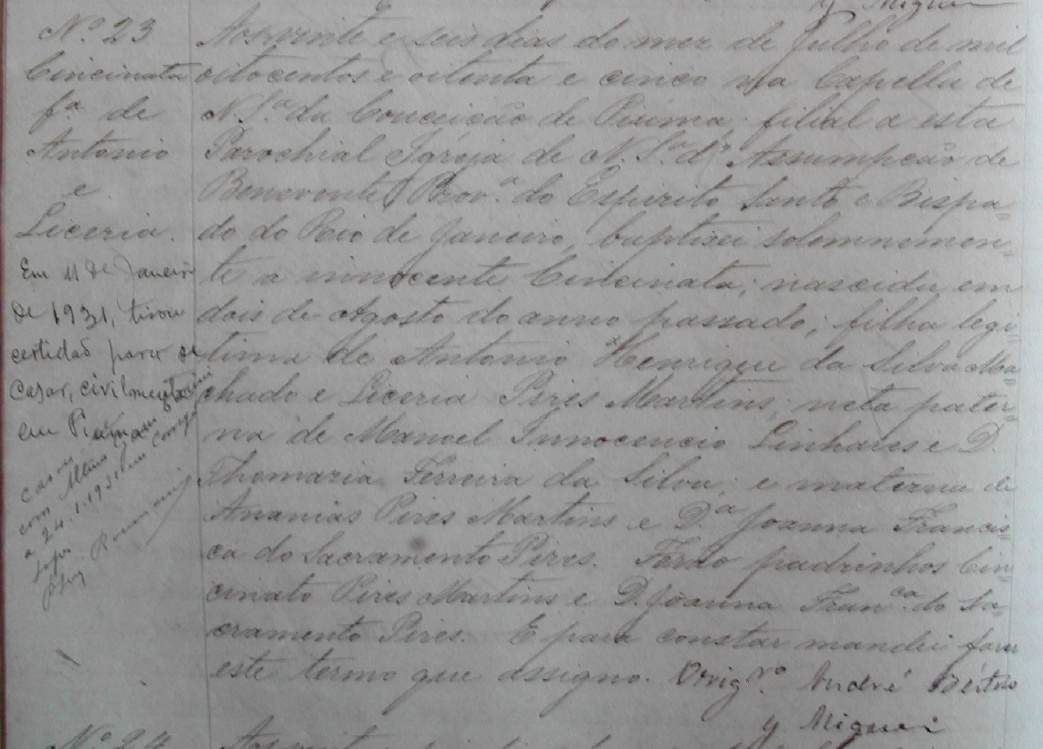 y Miguei
Nº 23
Cincinata
fª de
Antonio
e
Liceria.
Em 11 de Janeiro
de 1931, tirou
certidão para se
casar, civilmente
em
casou
com
a 24.1.1931
Aos vinte e seis dias do mez de Julho de mil
oitocentos e oitenta e cinco na Capella de
N. Sª da Conceição de Piúma, filial a esta
Parochial Igreja de N. Sª dª Assumpção de
Benevente, Provª do Espirito Santo e Bispa=
do do Rio de Janeiro, baptisei solemnemen=
te a innocente Cincinata; nascida em
dois de Agosto do anno passado; filha legi=
tima de Antonio Henrique da Silva Ma=
chado e Liceria Pires Martins; neta pater=
na de Manoel Innocencio Linhares e D.
Thomazia Ferreira da Silva; e materna de
Ananias Pires Martins e Dª Joanna Francis=
ca do Sacramento Pires. Forão padrinhos Cin=
cinato Pires Martins e D. Joanna Francª do Sa=
cramento Pires. E para constar mandei fazer
este termo que assigno. André
y Miguei
Nº 24
Aos vinte